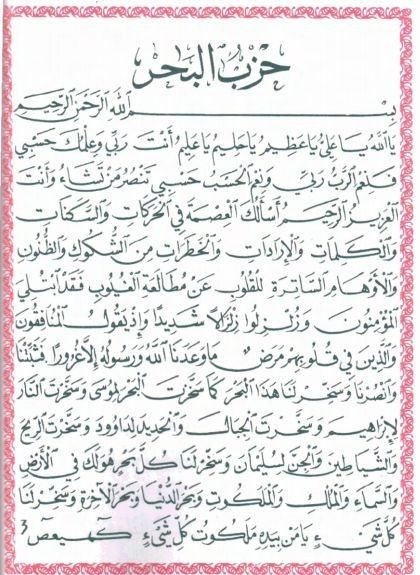 حزب البحر
بسم الله الرحمن الرحيم
يا الله يا علي يا عظيم يا حليم يا عليم أنت ربي وعلمك حسبي
فنعم الرب ربي ونعم الحسب حسبي تنصر من تشاء وأنت
العزيز الرحيم أسألك العصمة في الحركات والسكنات
والكلمات والإرادات والخطرات من الشكوك والظنون
والأوهام الساترة للقلوب عن مطالعة الغيوب فقد ابتلي
المؤمنون وزلزلوا زلزالا شديدا وإذ يقول المنافقون
والذين في قلوبهم مرض ما وعدنا الله ورسوله إلا غرورا فثبتنا
وانصرنا وسخر لنا هذا البحر كما سخرت البحر لموسى وسخرت النار
لإبراهيم وسخرت الجبال والحديد لداوود وسخرت الريح
والشياطين والجن لسليمان وسخر لنا كل بحر هو لك في الأرض
والسماء والملك والملكوت وبحر الدنيا وبحر الآخرة وسخر لنا
كل شيء يا من بيده ملكوت كل شيء كهيعص ٣